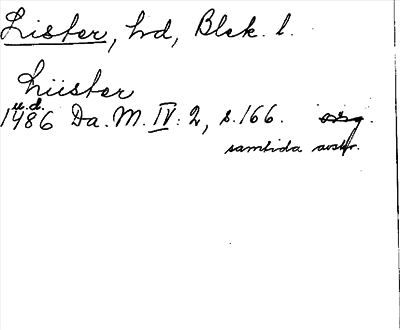 Lister, hd, Blek. l.
Lüster
u.d.
1486 Da. M. IV: 2, s. 166. org.
samtida avskr.